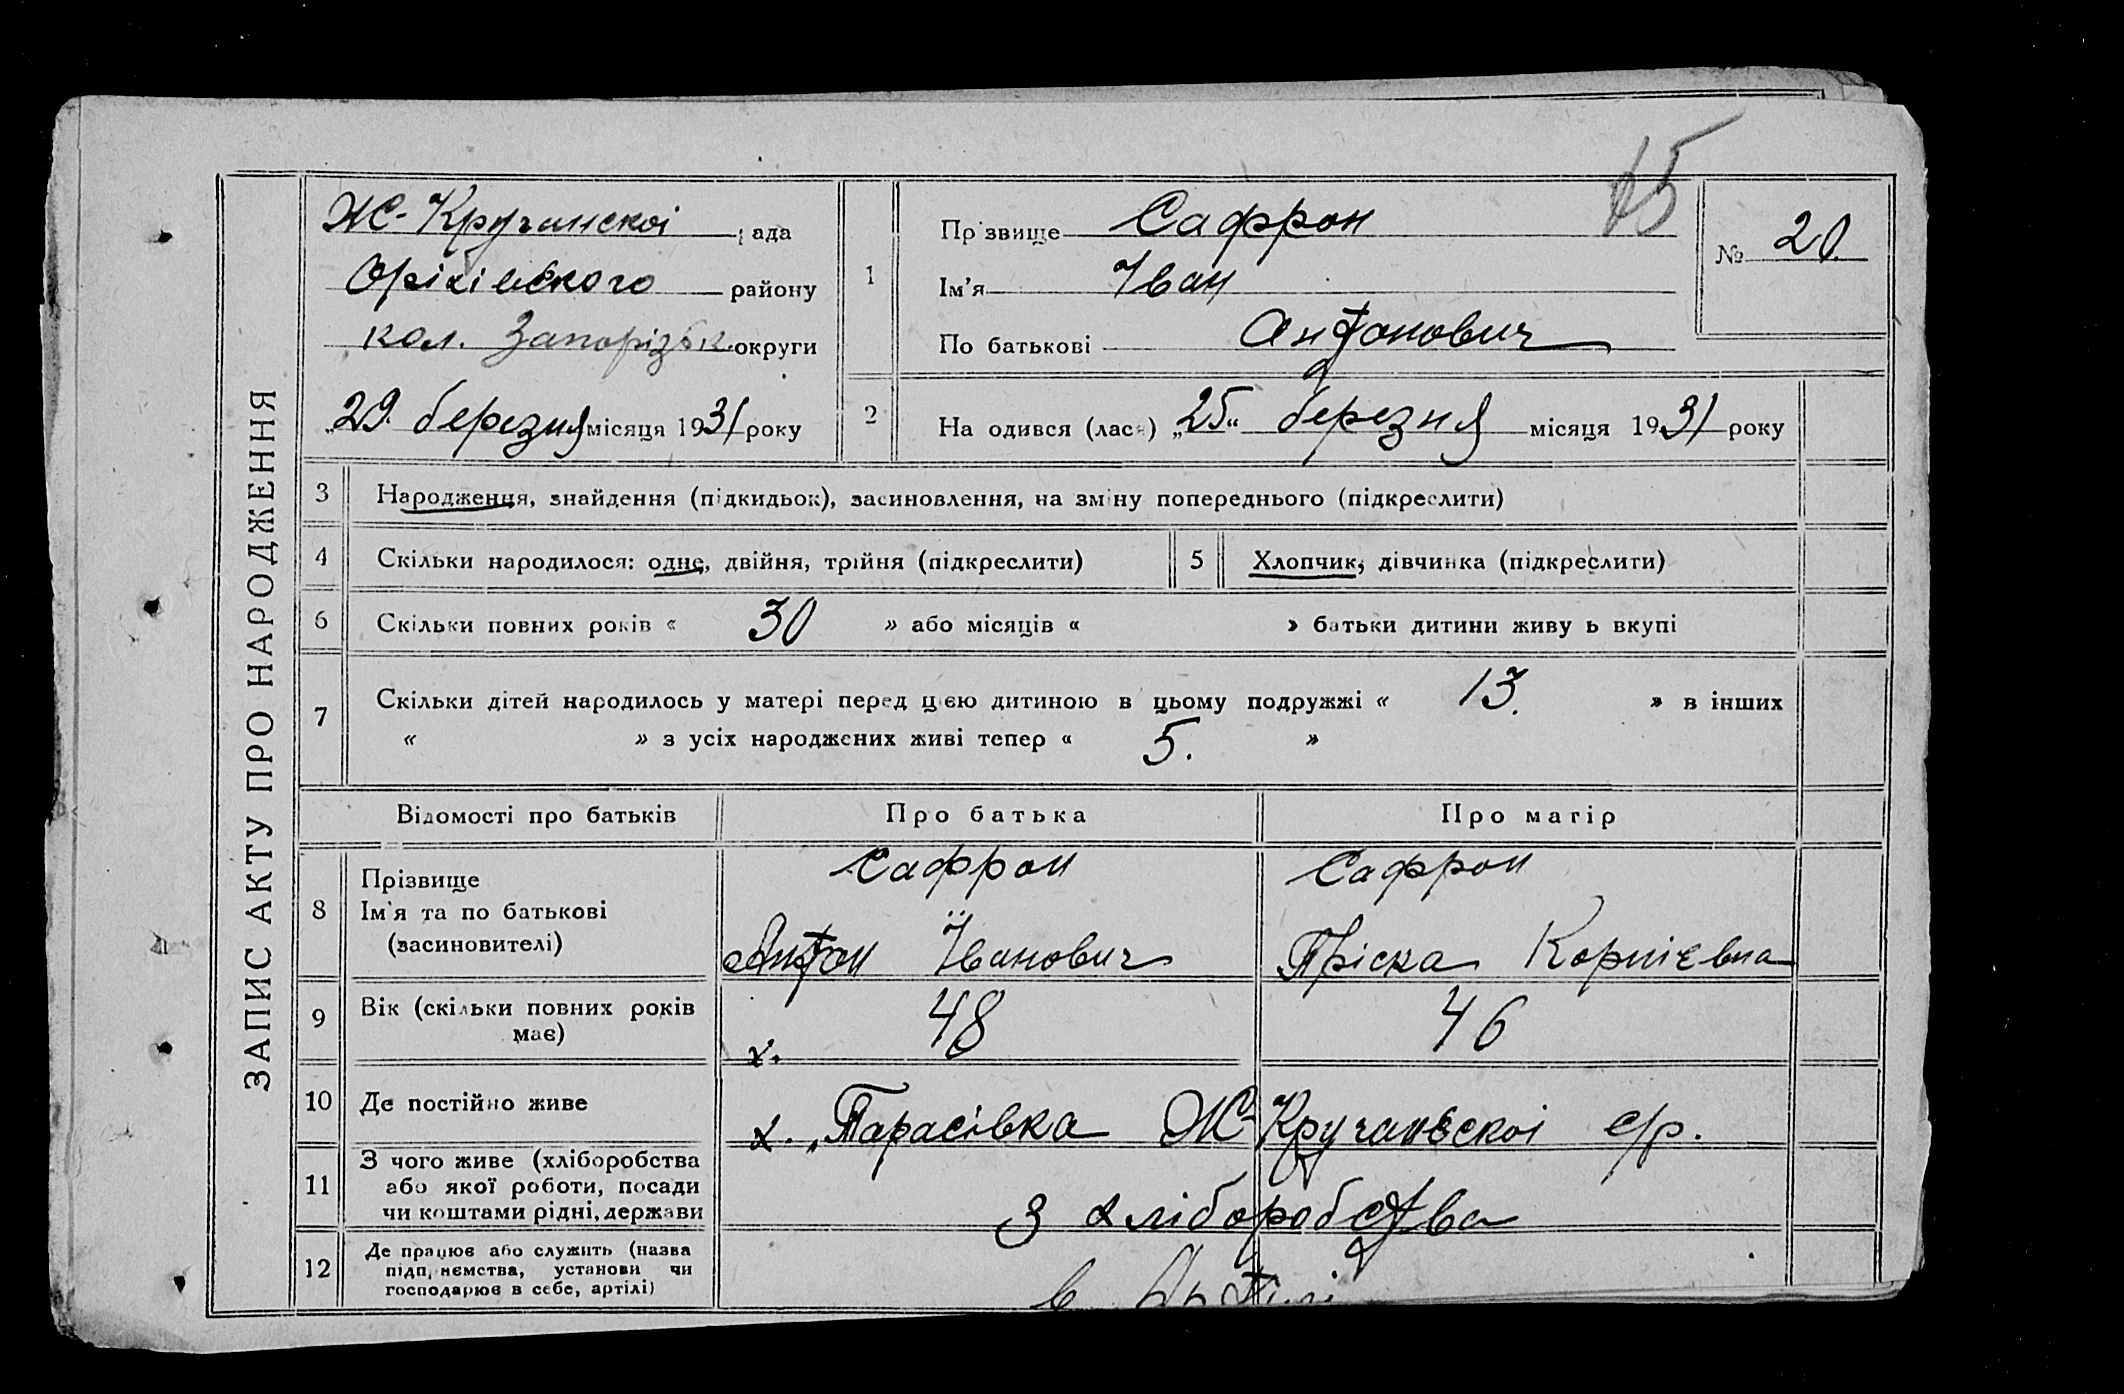 ЗАПИС АКТУ ПРО НАРОДЖЕННЯ
15
Ж-Кручанскоі рада
Оріхівського району
кол. Запорізьк. округи
„29. березня місяця 1931 року
1 Прізвище Сафрон
Ім'я Іван
По батькові Антонович
№ 20.
2 Народився (лась) „25“ березня місяця 1931 року
3 Народження, знайдення (підкидьок), засиновлення, на зміну попереднього (підкреслити)
4 Скільки народилося: одне, двійня, трійня (підкреслити) 5 Хлопчик, дівчинка (підкреслити)
6 Скільки повних років « 30 » або місяців « » батьки дитини живуть вкупі
7 Скільки дітей народилось у матері перед цією дитиною в цьому подружжі « 13. » в інших
« » з усіх народжених живі тепер « 5. »
Відомості про батьків Про батька Про матір
8 Прізвище Сафрон Сафрон
Ім'я та по батькові
(засиновителі) Антон Іванович Пріска Корніевна
9 Вік (скільки повних років має) 48 46
х.
10 Де постійно живе х. „Тарасівка Ж-Кручанскоі с/р.
11 З чого живе (хліборобства
або якої роботи, посади
чи коштами рідні, держави З хліборобства
12 Де працює або служить (назва
підприємства, установи чи
господарює в себе, артілі) в Артілі